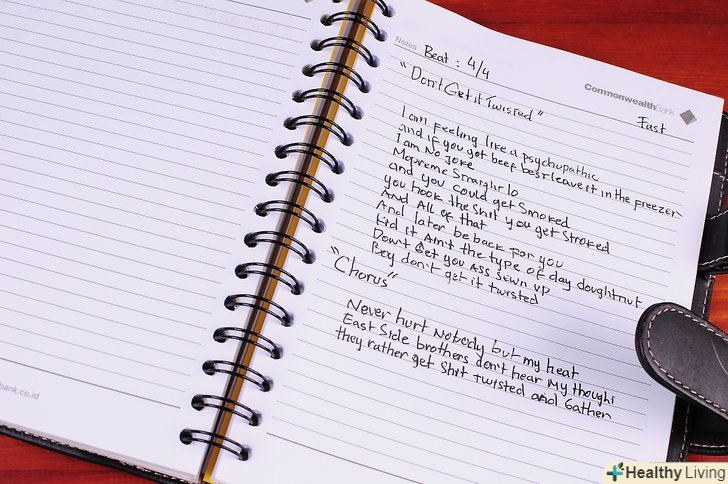 Notes
Beat : 4/4
CommonwealthBank
"Don't Get it Twisted"
Fast
I am feeling like a psychupathic
and if you got beef best leave it in the freezer
I am No joke
Mapreme Straight lo
and you could get Smoked
you hook the shit you get Stroked
And All of that
And later be back for you
kid it Ain't the type of day doughtnut
Don't Get you Ass Sewn up
Boy don't get it twisted
"Chorus"
Never hurt Nobody but my heat
East Side brothers don't hear My thoughi
they rather get Shit twisted and Gather
bank.co.id
Healthy Living